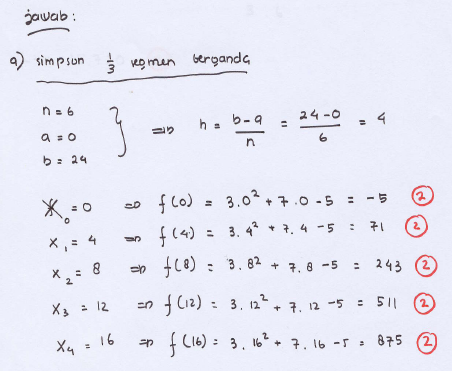 jawab :
a) simpson 1/3 segmen berganda
n = 6
a = 0
b = 24
} => h = (b-a)/n = (24-0)/6 = 4
X₀ = 0 => f(0) = 3.0² + 7.0 - 5 = -5 ②
X₁ = 4 => f(4) = 3.4² + 7.4 - 5 = 71 ②
X₂ = 8 => f(8) = 3.8² + 7.8 - 5 = 243 ②
X₃ = 12 => f(12) = 3.12² + 7.12 - 5 = 511 ②
X₄ = 16 => f(16) = 3.16² + 7.16 - 5 = 875 ②